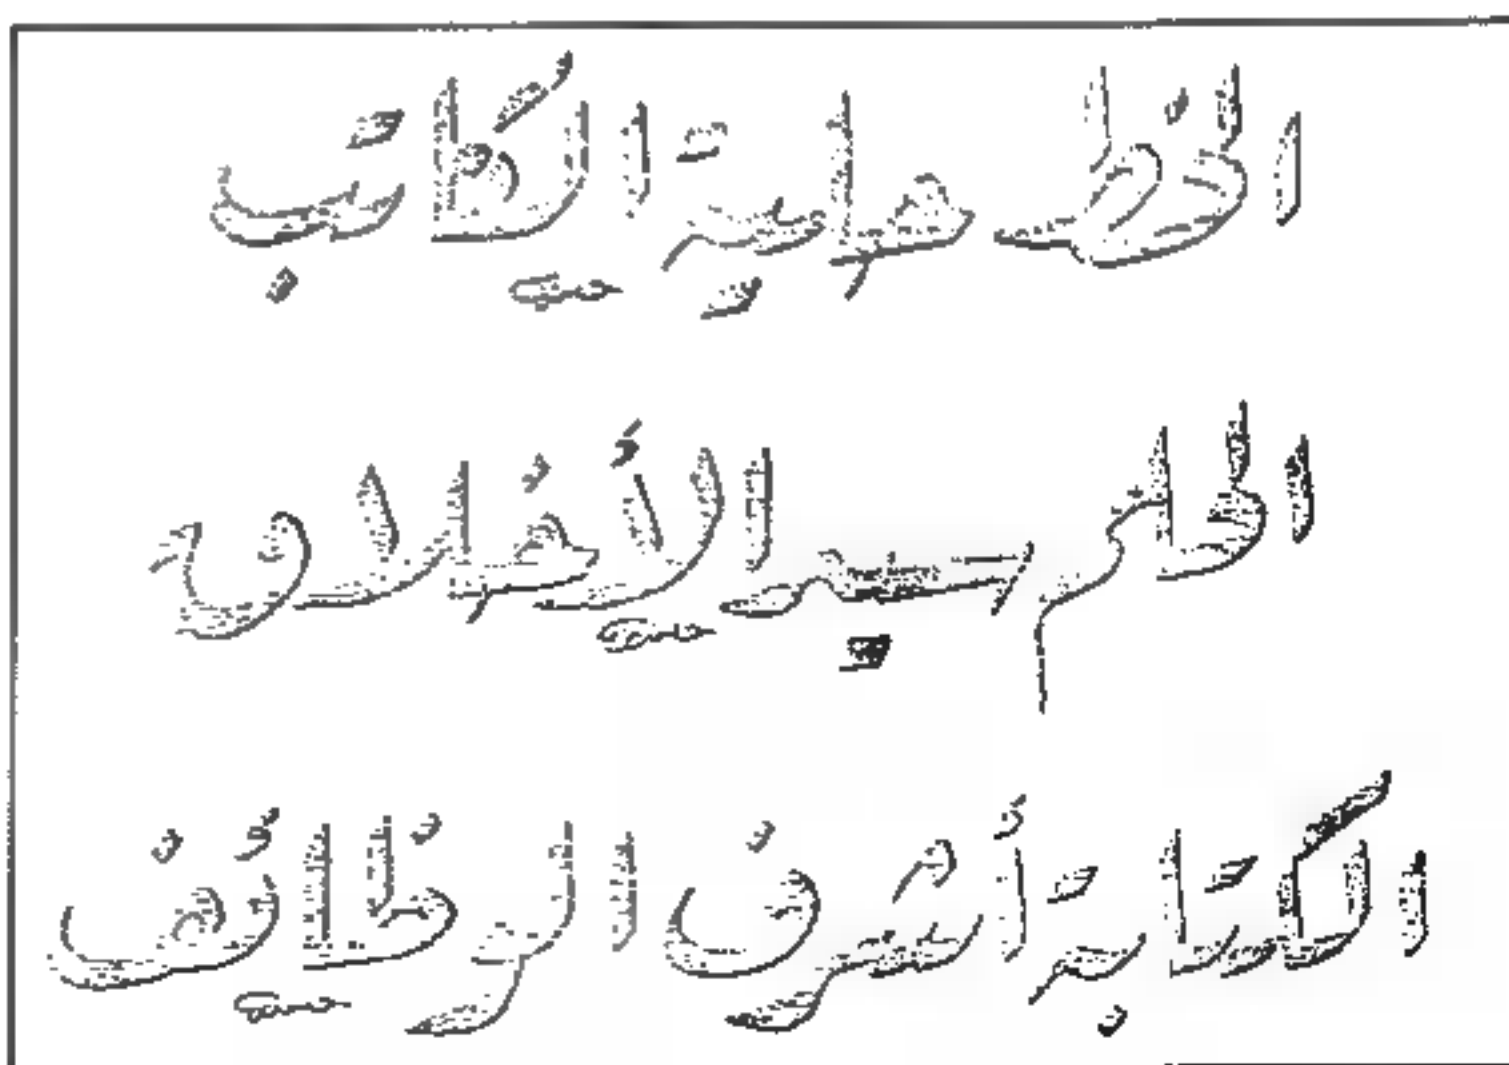 الخط حلية الكاتب
الحلم سيد الأخلاق
الكتابة أشرف الوظائف